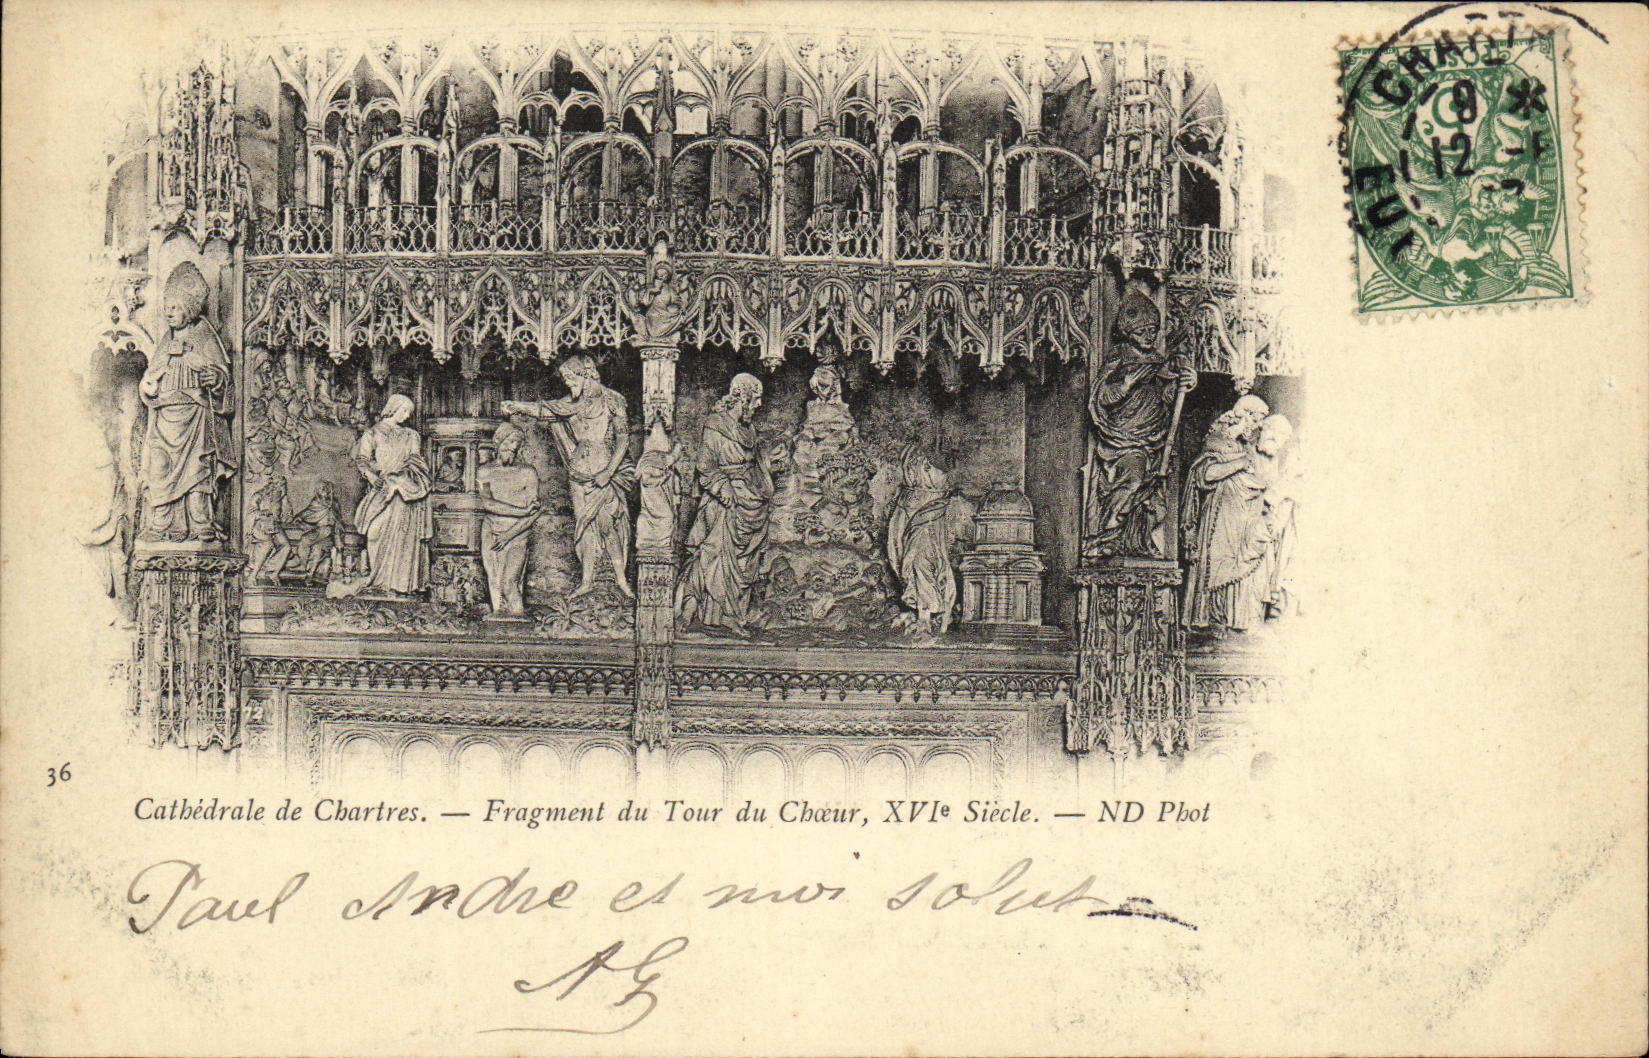 CHART
9 *
12
5
72
36
Cathédrale de Chartres. — Fragment du Tour du Chœur, XVIe Siècle. — ND Phot
Paul Andre et moi salut
AG